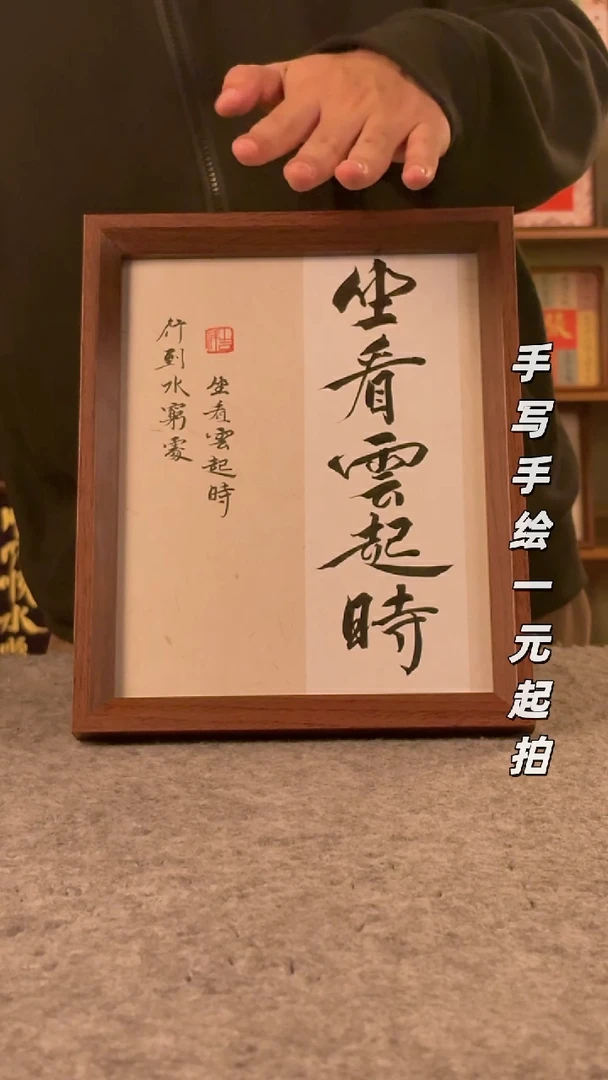 坐看雲起時
坐看雲起時
行到水窮處
手写手绘一元起拍